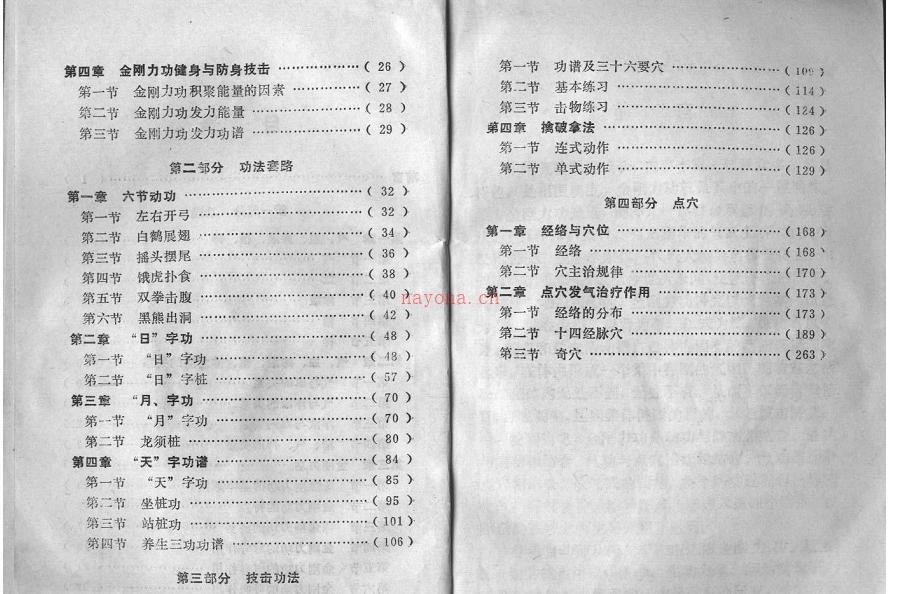 第四章 金刚力功健身与防身技击 ……………( 26 )
第一节 金刚力功积聚能量的因素 …………( 27 )
第二节 金刚力功发力能量 …………………( 28 )
第三节 金刚力功发力功谱 …………………( 29 )
第二部分 功法套路
第一章 六节动功 ……………………………( 32 )
第一节 左右开弓 ……………………………( 32 )
第二节 白鹤展翅 ……………………………( 34 )
第三节 摇头摆尾 ……………………………( 36 )
第四节 饿虎扑食 ……………………………( 38 )
第五节 双拳击腹 ……………………………( 40 )
第六节 黑熊出洞 ……………………………( 42 )
第二章 “日”字功 …………………………( 48 )
第一节 “日”字功 …………………………( 48 )
第二节 “日”字桩 …………………………( 57 )
第三章 “月、字功 …………………………( 70 )
第一节 “月”字功 …………………………( 70 )
第二节 龙须桩 ………………………………( 80 )
第四章 “天”字功谱 ………………………( 84 )
第一节 “天”字功 …………………………( 85 )
第二节 坐桩功 ………………………………( 95 )
第三节 站桩功 ………………………………(101)
第四节 养生三功功谱 ………………………(106)
第三部分 技击功法
第一节 功谱及三十六要穴 …………………(109)
第二节 基本练习 ……………………………(114)
第三节 击物练习 ……………………………(124)
第四章 擒破拿法 ……………………………(126)
第一节 连式动作 ……………………………(126)
第二节 单式动作 ……………………………(129)
第四部分 点穴
第一章 经络与穴位 …………………………(168)
第一节 经络 …………………………………(168)
第二节 穴主治规律 …………………………(170)
第二章 点穴发气治疗作用 …………………(173)
第一节 经络的分布 …………………………(173)
第二节 十四经脉穴 …………………………(189)
第三节 奇穴 …………………………………(263)
nayona.cn